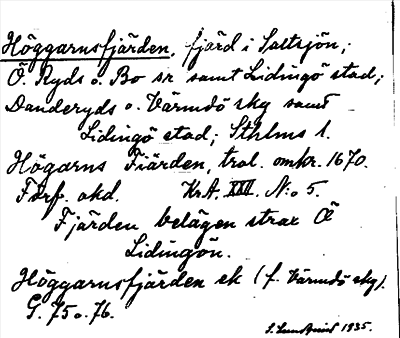 Höggarnsfjärden, fjärd i Saltsjön;
Ö. Ryds o. Bo sr samt Lidingö stad;
Danderyds o. Värmdö skg samt
Lidingö stad; Sthlms l.
Högarns Fiärden, trol. omkr. 1670.
Förf. okd. KrA. XXII. N:o 5.
Fjärden belägen strax Ö
Lidingön.
Höggarnsfjärden ek (f. Värmdö skg).
G. 75 o. 76.
1935.